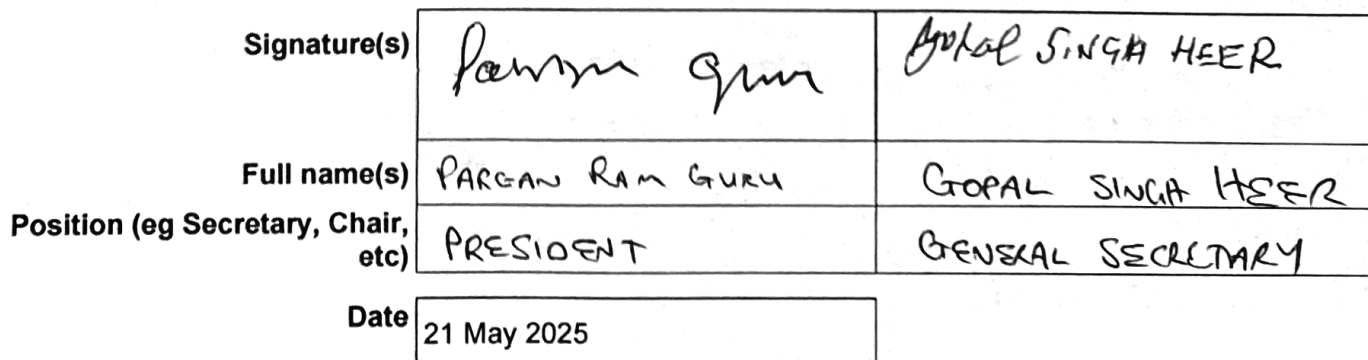 Signature(s) Gopal SINGH HEER
Full name(s) PARGAN RAM GURU GOPAL SINGH HEER
Position (eg Secretary, Chair,
etc) PRESIDENT GENERAL SECRETARY
Date 21 May 2025